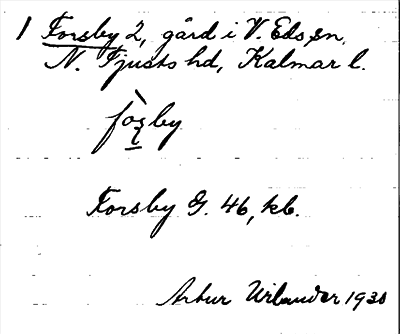 1 Forsby 2, gård i V. Eds sn,
N. Tjusts hd, Kalmar l.
Forsby G. 46, kb.
Arthur Wilander 1930